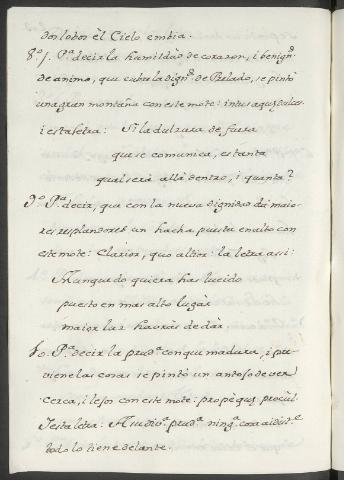 dos lobos el Cielo embia.
8.º/. P.ª decir la humildad de corazon, i benign.d
de animo, que cubre la dign.d de Prelado, se pintó
una gran montaña con este mote: intus aquę dulces
i esta letra: Si la dulzura de fuera
que se comunica, es tanta
qual será allá dentro, i quanta?
9.º P.ª decir, que con la nueva dignidad dá maio-
res resplandores un hacha puesta en alto con
este mote: Clarior, quo altior: la letra assi:
Aunque do quiera has lucido
puesto en mas alto lugar
maior luz havràs de dàr.
10. P.ª decir la prud.ª con que madura, i pre-
viene las cosas se pintò un antojo de ver
cerca, i lejos con este mote: propè quę procùl
I esta letra: A su div.ª prud.ª ning.ª cosa distte
todo lo tiene delante.